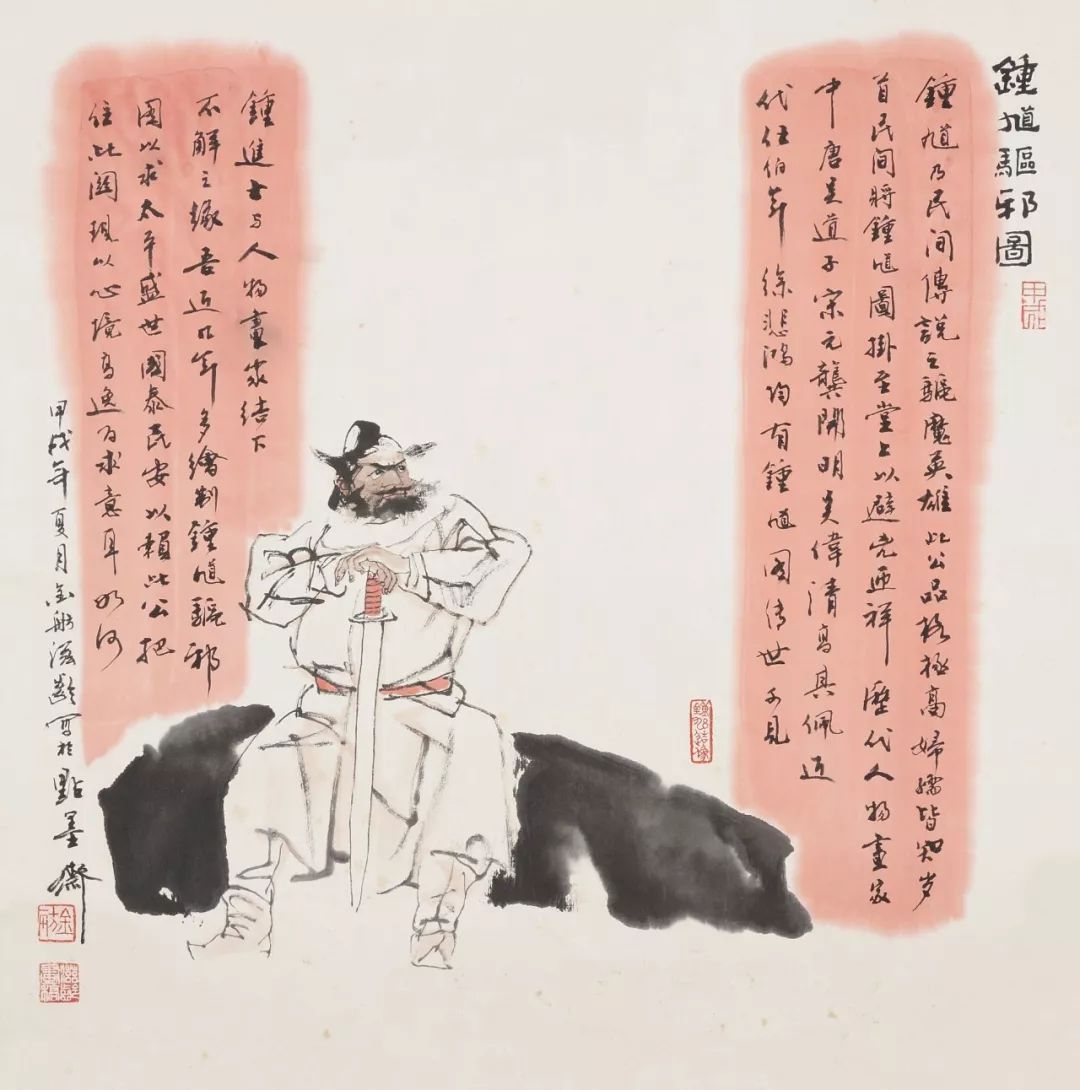 鍾馗驅邪圖
甲戌
鍾馗乃民间傳説之驅魔英雄此公品格極高婦孺皆知岁
首民间將鍾馗圖掛至堂上以避兇迎祥 歷代人物畫家
中唐吴道子宋元龔開明吴偉清高其佩近
代任伯年 徐悲鴻均有鍾馗図传世可見
鍾進士与人物畫家结下
不解之缘吾近几年多繪制鍾馗驅邪
図以求太平盛世國泰民安以賴此公把
住此関现以心境高逸为求意耳如何
甲戌年夏月金舫 写於點墨齋
金舫